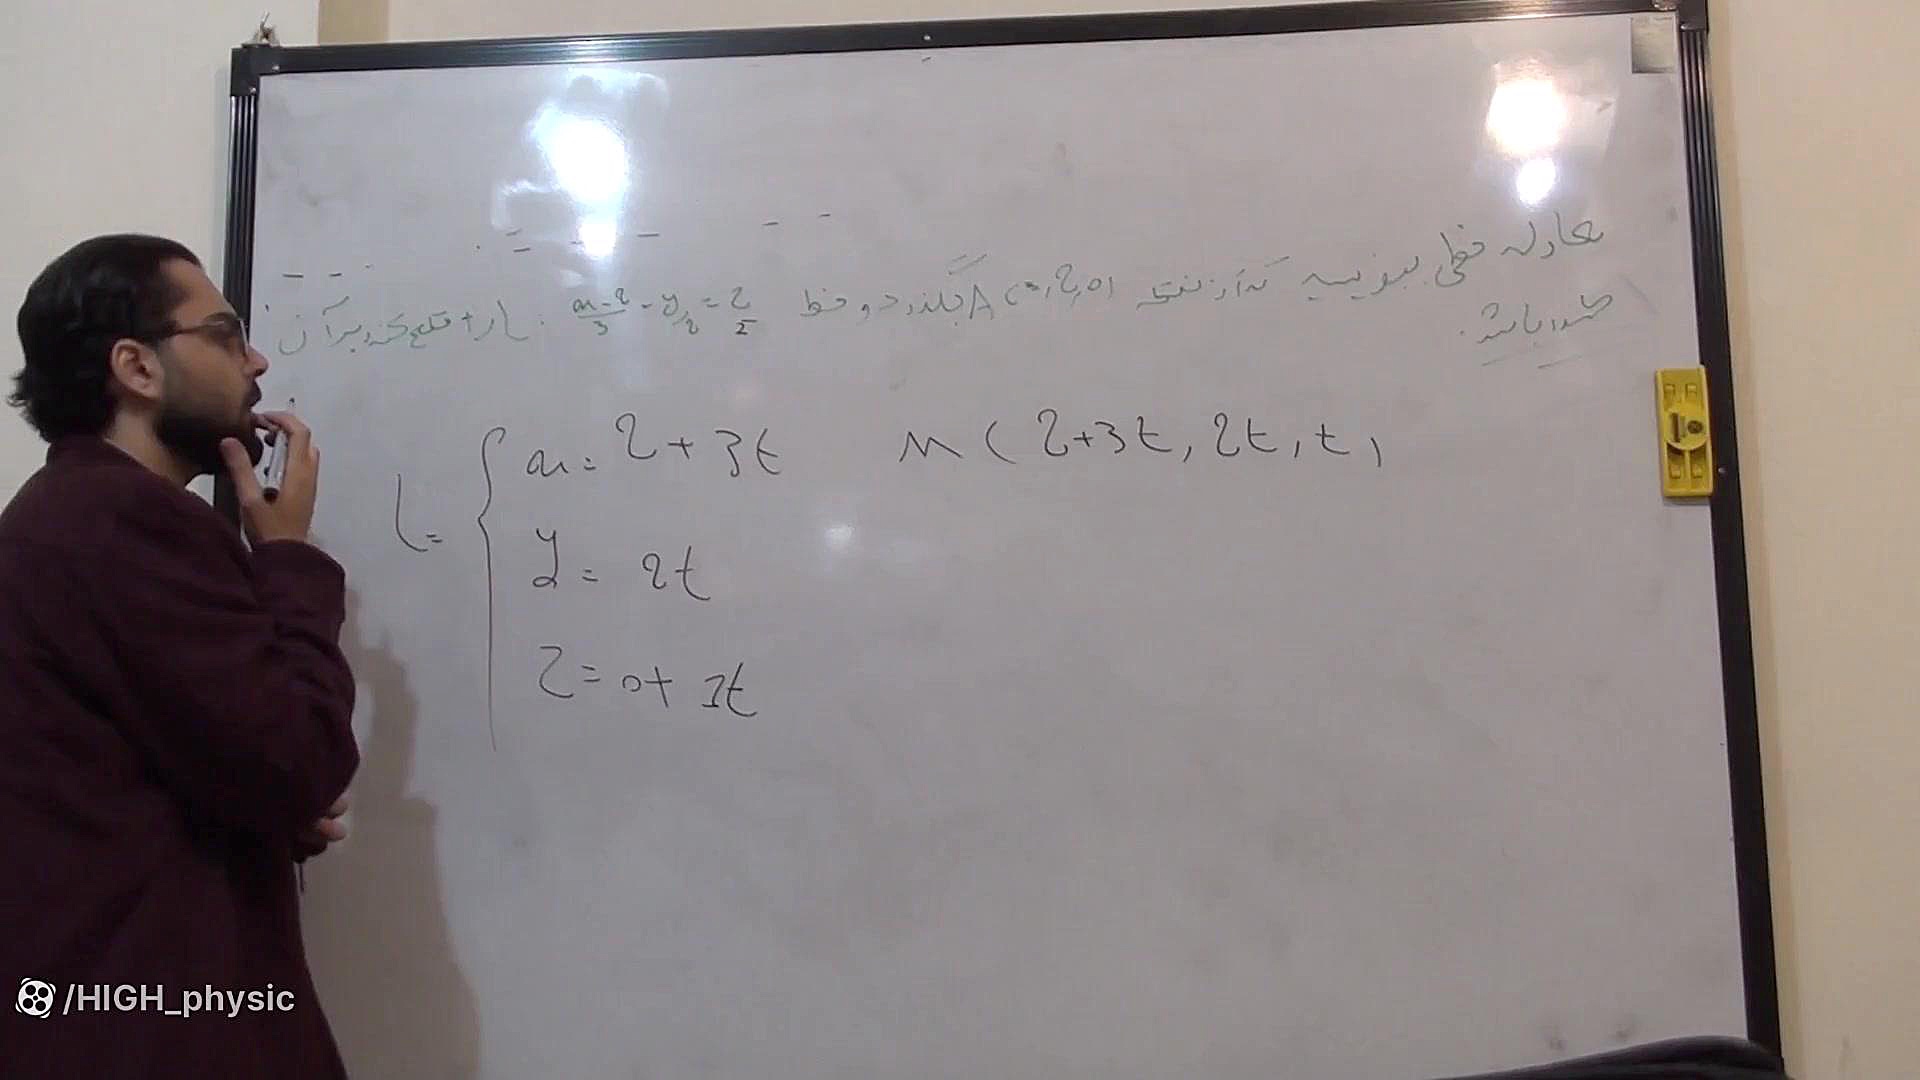 معادله خطی بنویسید که از نقطه A(3,2,0) بگذرد و خط \frac{x-2}{3} = \frac{y}{2} = \frac{z}{1} : L را قطع کند بر آن
عمود باشد.
L = { x = 2 + 3t
y = 2t
z = 0 + 1t
M ( 2+3t, 2t, t )
/HIGH_physic